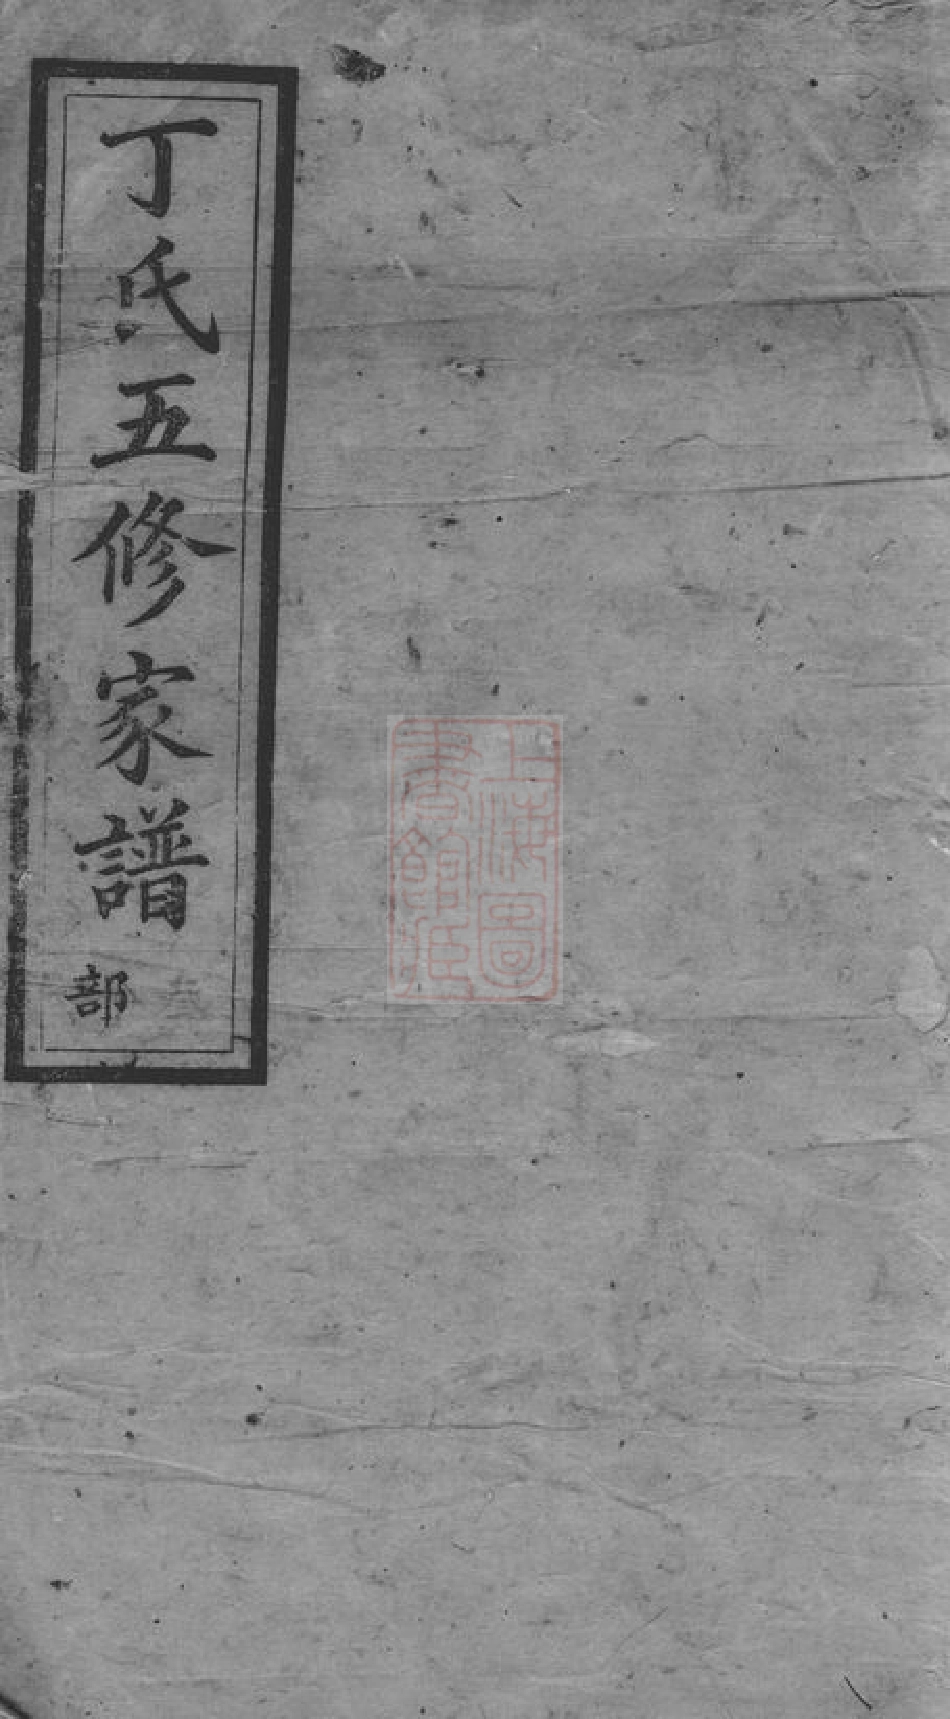 丁氏五修家譜
部
上海圖
書館藏